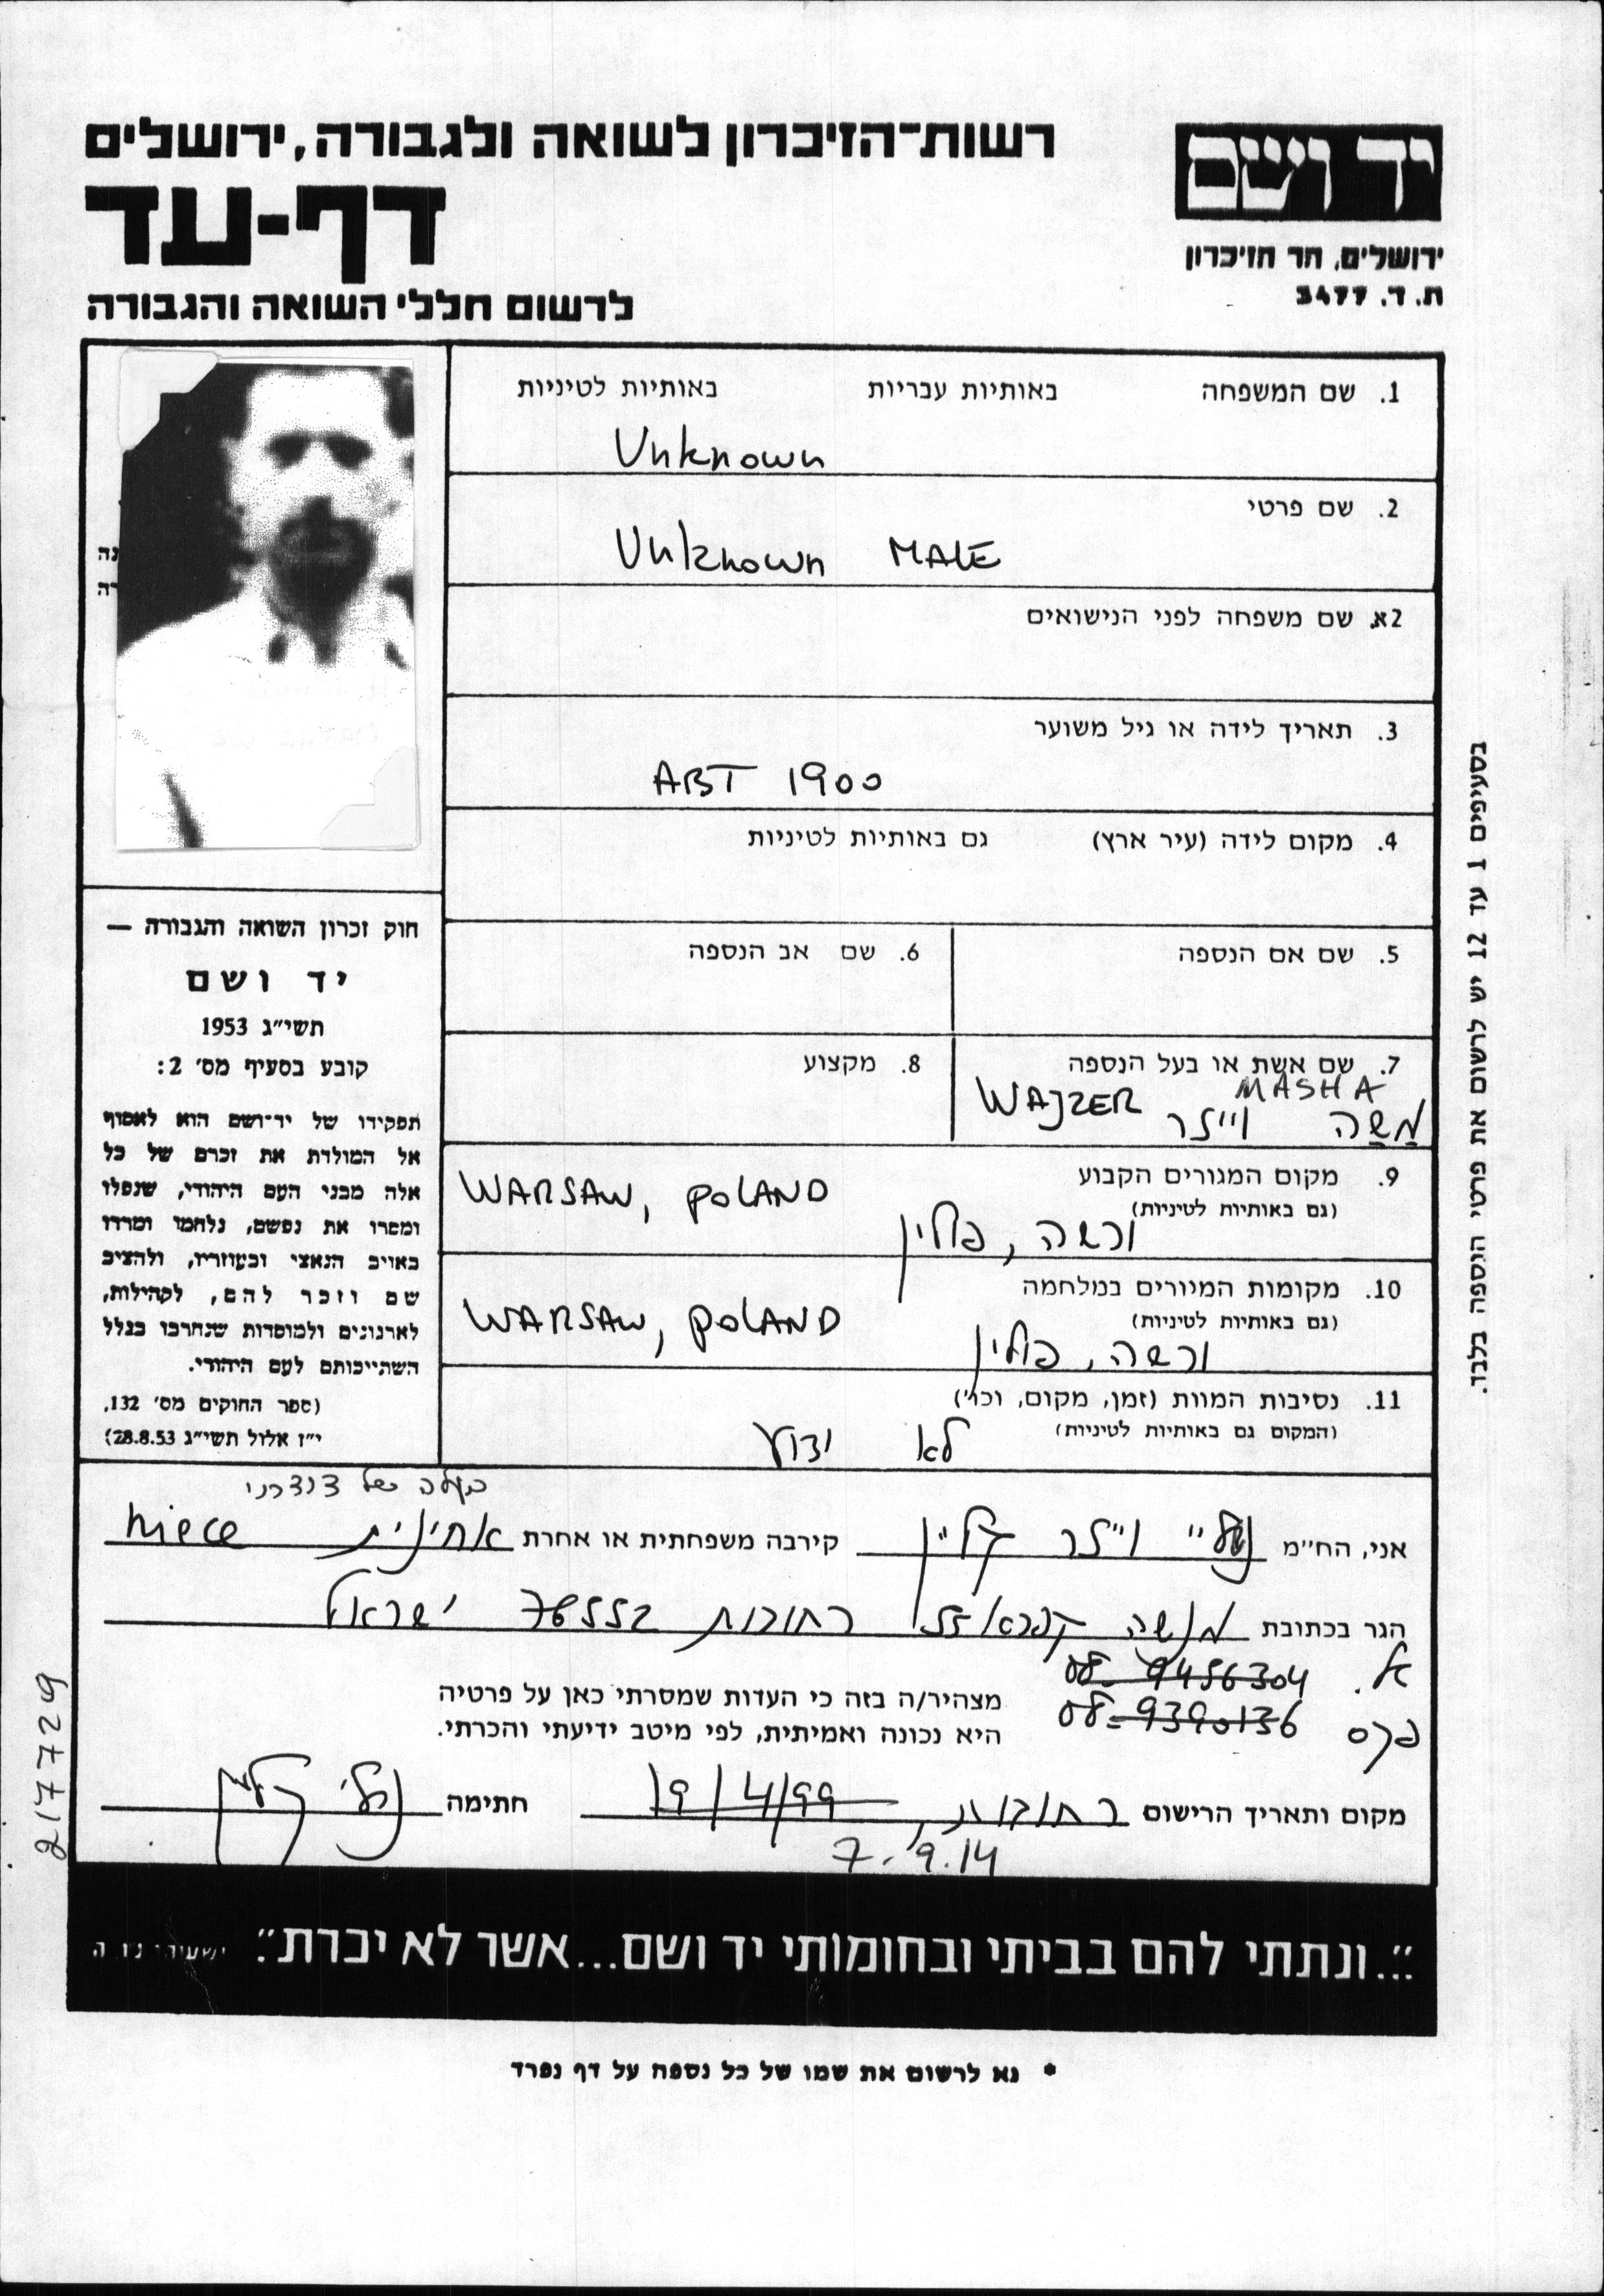 רשות־הזיכרון לשואה ולגבורה, ירושלים
דף-עד
לרשום חללי השואה והגבורה
יד ושם
ירושלים, הר הזיכרון
ת. ד. 3477
1. שם המשפחה באותיות עבריות באותיות לטיניות
Unknown
2. שם פרטי
Unknown MALE
2א. שם משפחה לפני הנישואים
3. תאריך לידה או גיל משוער
ABT 1900
4. מקום לידה (עיר ארץ) גם באותיות לטיניות
5. שם אם הנספה
6. שם אב הנספה
7. שם אשת או בעל הנספה
MASHA WAJZER
מַשַה וייזר
8. מקצוע
9. מקום המגורים הקבוע
(גם באותיות לטיניות)
WARSAW, POLAND
ורשה, פולין
10. מקומות המגורים במלחמה
(גם באותיות לטיניות)
WARSAW, POLAND
ורשה, פולין
11. נסיבות המוות (זמן, מקום, וכו')
(המקום גם באותיות לטיניות)
לא ידוע
נה
רה
חוק זכרון השואה והגבורה —
יד ושם
תשי״ג 1953
קובע בסעיף מס׳ 2:
תפקידו של יד־ושם הוא לאסוף
אל המולדת את זכרם של כל
אלה מבני העם היהודי, שנפלו
ומסרו את נפשם, נלחמו ומרדו
באויב הנאצי ובעוזריו, ולהציב
שם וזכר להם, לקהילות,
לארגונים ולמוסדות שנחרבו בגלל
השתייכותם לעם היהודי.
(ספר החוקים מס׳ 132,
י״ז אלול תשי״ג 28.8.53)
בסעיפים 1 עד 12 יש לרשום את פרטי הניספה בלבד.
של
אני, הח״מ וייזר קליין קירבה משפחתית או אחרת אחינית niece
הגר בכתובת מנשה רחובות ישראל
08-9456304
פקס 08-9390136
מצהיר/ה בזה כי העדות שמסרתי כאן על פרטיה
היא נכונה ואמיתית, לפי מיטב ידיעתי והכרתי.
מקום ותאריך הרישום רחובות, 19/4/99 חתימה
7.9.14
217729
״...ונתתי להם בביתי ובחומותי יד ושם...אשר לא יכרת״. ישעיהו נו ה
* נא לרשום את שמו של כל נספה על דף נפרד